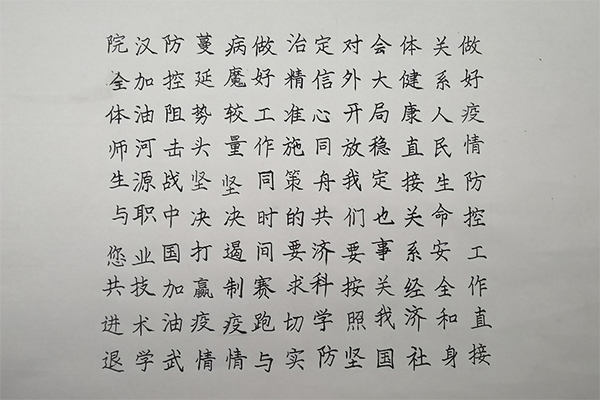 做好疫情防控工作直接
关系人民生命安全和身
体健康直接关系经济社
会大局稳定也事关我国
对外开放我们要按照坚
定信心同舟共济科学防
治精准施策的要求切实
做好工作同时间赛跑与
病魔较量坚决遏制疫情
蔓延势头坚决打赢疫情
防控阻击战中国加油武
汉加油河源职业技术学
院全体师生与您共进退